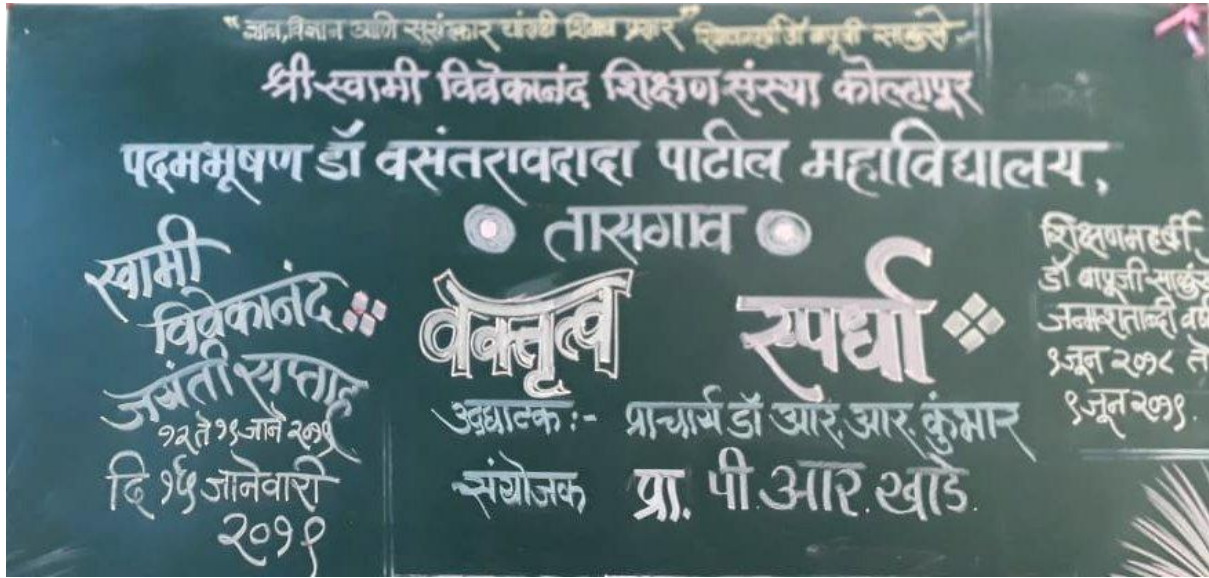 "ज्ञान,विज्ञान आणि सुसंस्कार यांसाठी शिक्षण प्रसार" शिक्षणमहर्षी डॉ बापूजी साळुंखे
श्री स्वामी विवेकानंद शिक्षण संस्था कोल्हापूर
पद्मभूषण डॉ वसंतरावदादा पाटील महाविद्यालय,
तासगाव
स्वामी
विवेकानंद
जयंती सप्ताह
१२ ते १९ जाने २०१९
दि १५ जानेवारी
२०१९
वक्तृत्व स्पर्धा
उद्घाटक :- प्राचार्य डॉ आर. आर. कुंभार
संयोजक प्रा. पी. आर. खाडे.
शिक्षणमहर्षी
डॉ बापूजी साळुंखे
जन्मशताब्दी वर्ष
९ जून २०१८ ते
९ जून २०१९.